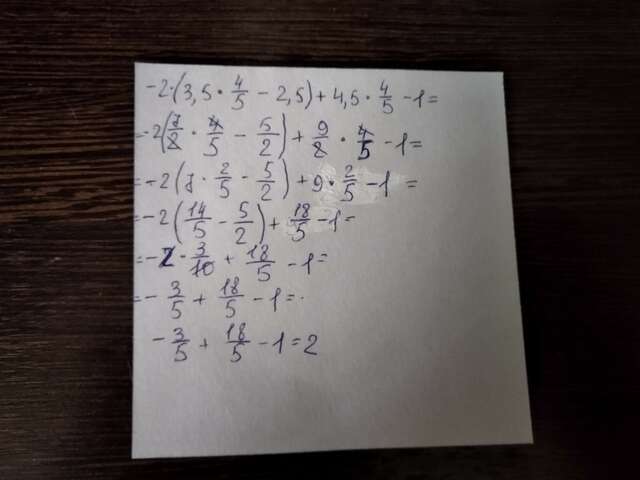 -2·(3,5·4/5 - 2,5) + 4,5·4/5 - 1 =
= -2(7/2·4/5 - 5/2) + 9/2·4/5 - 1 =
= -2(7·2/5 - 5/2) + 9·2/5 - 1 =
= -2(14/5 - 5/2) + 18/5 - 1 =
= -2·3/10 + 18/5 - 1 =
= - 3/5 + 18/5 - 1 = .
- 3/5 + 18/5 - 1 = 2